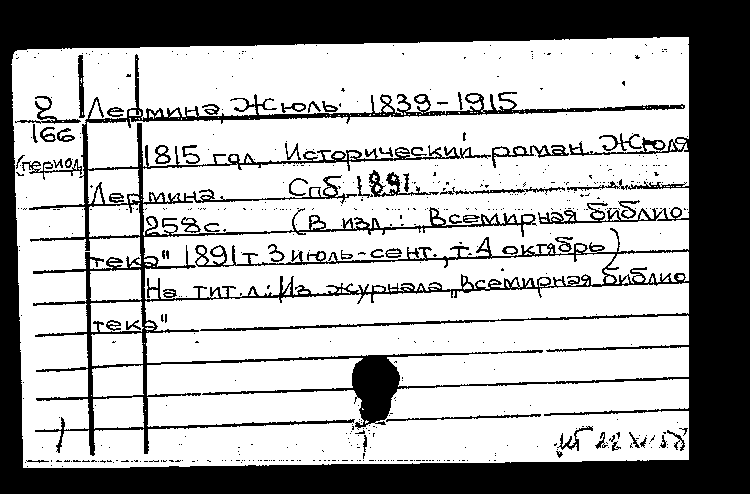 8 Лермина, Жюль, 1839-1915
166
(период
1815 год. Исторический роман Жюля
Лермина. Спб, 1891.
258с. (В изд.: „Всемирная библио
тека" 1891 т. 3 июль-сент., т. 4 октябрь)
На тит. л.: Из журнала „Всемирная библио
тека"